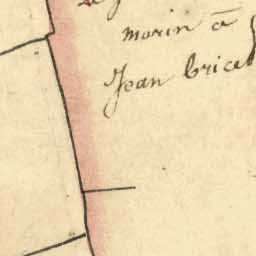 morin c̄
Jean brice